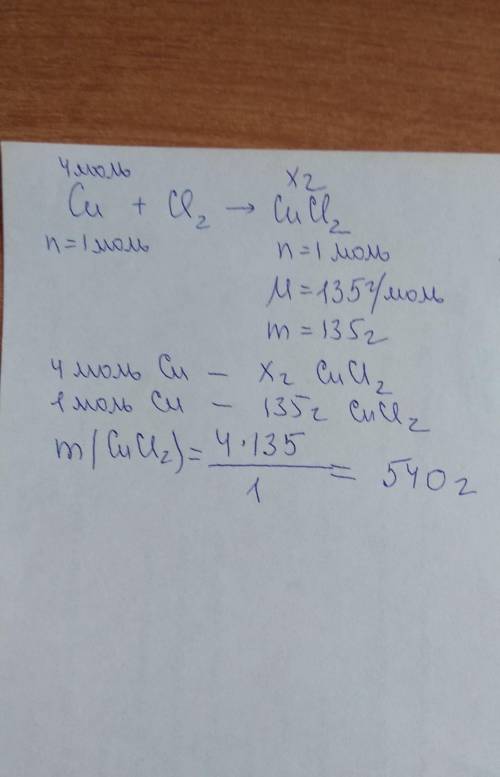 4 моль x г
Cu + Cl₂ → CuCl₂
n = 1 моль n = 1 моль
M = 135 г/моль
m = 135 г
4 моль Cu – x г CuCl₂
1 моль Cu – 135 г CuCl₂
m(CuCl₂) = 4·135 / 1 = 540 г